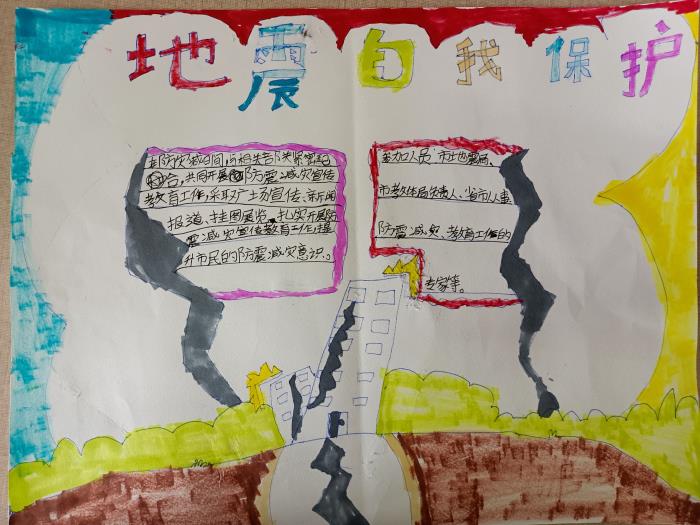 地震自我保护
防灾减日间,与相关部门联系
台,共同开展防震减灾宣传
教育工作,采取广场宣传、新闻
报道、挂图展览、扎实开展防
震减灾宣传教育工作,提
升市民的防震减灾意识。
参加人员:市地震局、
市教体局负责人、省市从事
防震减灾、教育工作的
专家等。